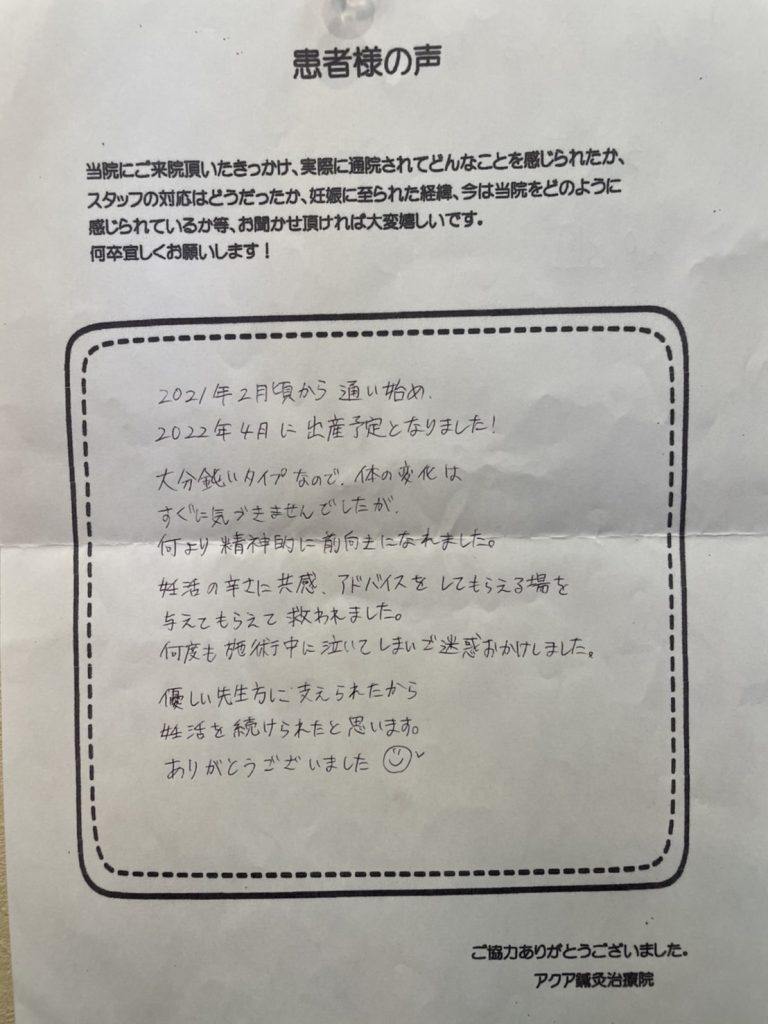 患者様の声
当院にご来院頂いたきっかけ、実際に通院されてどんなことを感じられたか、
スタッフの対応はどうだったか、妊娠に至られた経緯、今は当院をどのように
感じられているか等、お聞かせ頂ければ大変嬉しいです。
何卒宜しくお願いします！
2021年2月頃から通い始め、
2022年4月に出産予定となりました!
大分鈍いタイプなので、体の変化は
すぐに気づきませんでしたが、
何より精神的に前向きになれました。
妊活の辛さに共感、アドバイスをしてもらえる場を
与えてもらえて救われました。
何度も施術中に泣いてしまいご迷惑おかけしました。
優しい先生方に支えられたから
妊活を続けられたと思います。
ありがとうございました
ご協力ありがとうございました。
アクア鍼灸治療院